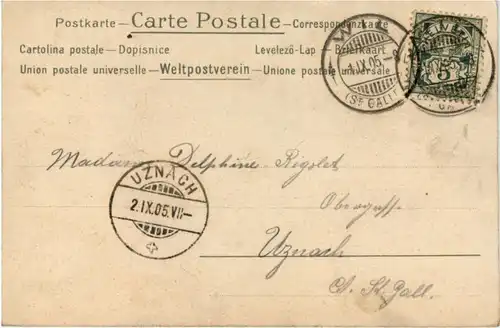 Postkarte — Carte Postale — Correspondenzkarte
Cartolina postale — Dopisnice Levelező-Lap — Brievkaart
Union postale universelle — Weltpostverein — Unione postale universale
WIL
1.IX.05.
(ST GALLEN)
5
Madame Delphine Rigolet
UZNACH
2.IX.05.VII—
Obergasse
Uznach
Ct. St. Gall.